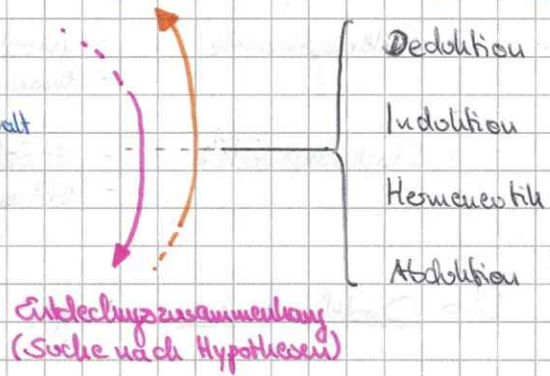 Deduktion
alt
Induktion
Hermeneutik
Abduktion
Entdeckungszusammenhang
(Suche nach Hypothesen)